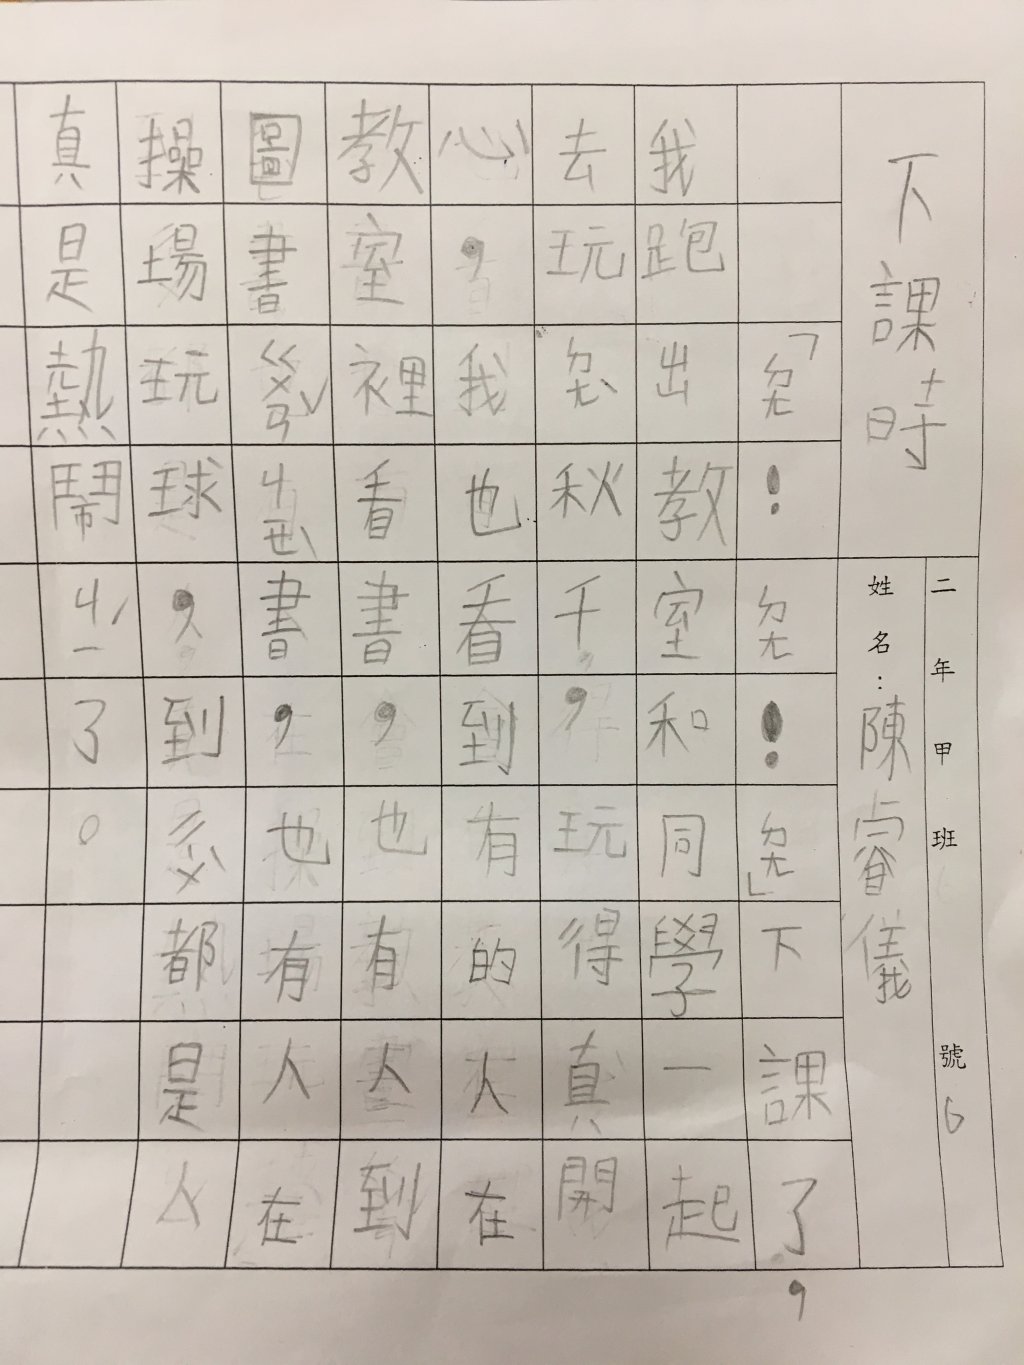 下課時
二年甲班 號6
姓名：陳睿儀
「ㄉㄤ！ㄉㄤ！ㄉㄤ」下課了，
我跑出教室和同學一起
去玩ㄉㄤˋ秋千，玩得真開
心，我也看到有的人在
教室裡看書，也有人到
圖書ㄍㄨㄢˇㄐㄧㄝˋ書，也有人在
操場玩球，到ㄔㄨˋ都是人
真是熱鬧ㄐㄧˊ了。